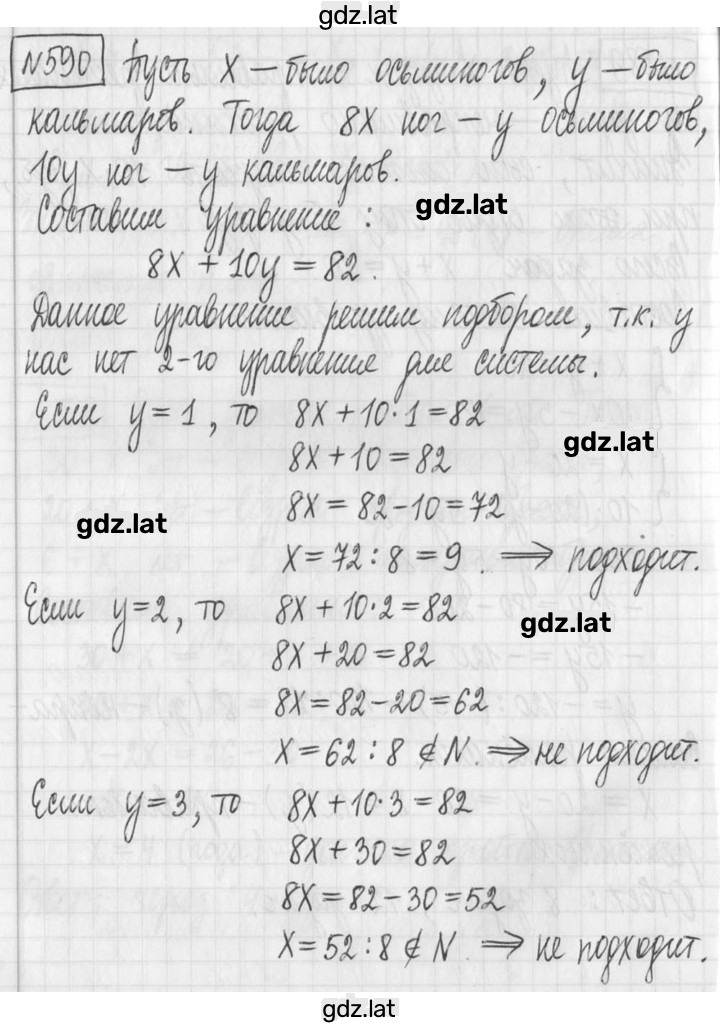 gdz.lat
№590 Пусть x – было осьминогов, y – было
кальмаров. Тогда 8x ног – y осьминогов,
10y ног – y кальмаров.
Составим уравнение:
gdz.lat
8x + 10y = 82.
Данное уравнение решим подбором, т.к. у
нас нет 2-го уравнения для системы.
Если y = 1, то 8x + 10·1 = 82
gdz.lat
8x + 10 = 82
8x = 82 – 10 = 72
gdz.lat
x = 72 : 8 = 9. ⟹ подходит.
Если y = 2, то 8x + 10·2 = 82
gdz.lat
8x + 20 = 82
8x = 82 – 20 = 62
x = 62 : 8 ∉ N. ⟹ не подходит.
Если y = 3, то 8x + 10·3 = 82
8x + 30 = 82
8x = 82 – 30 = 52
x = 52 : 8 ∉ N. ⟹ не подходит.
gdz.lat